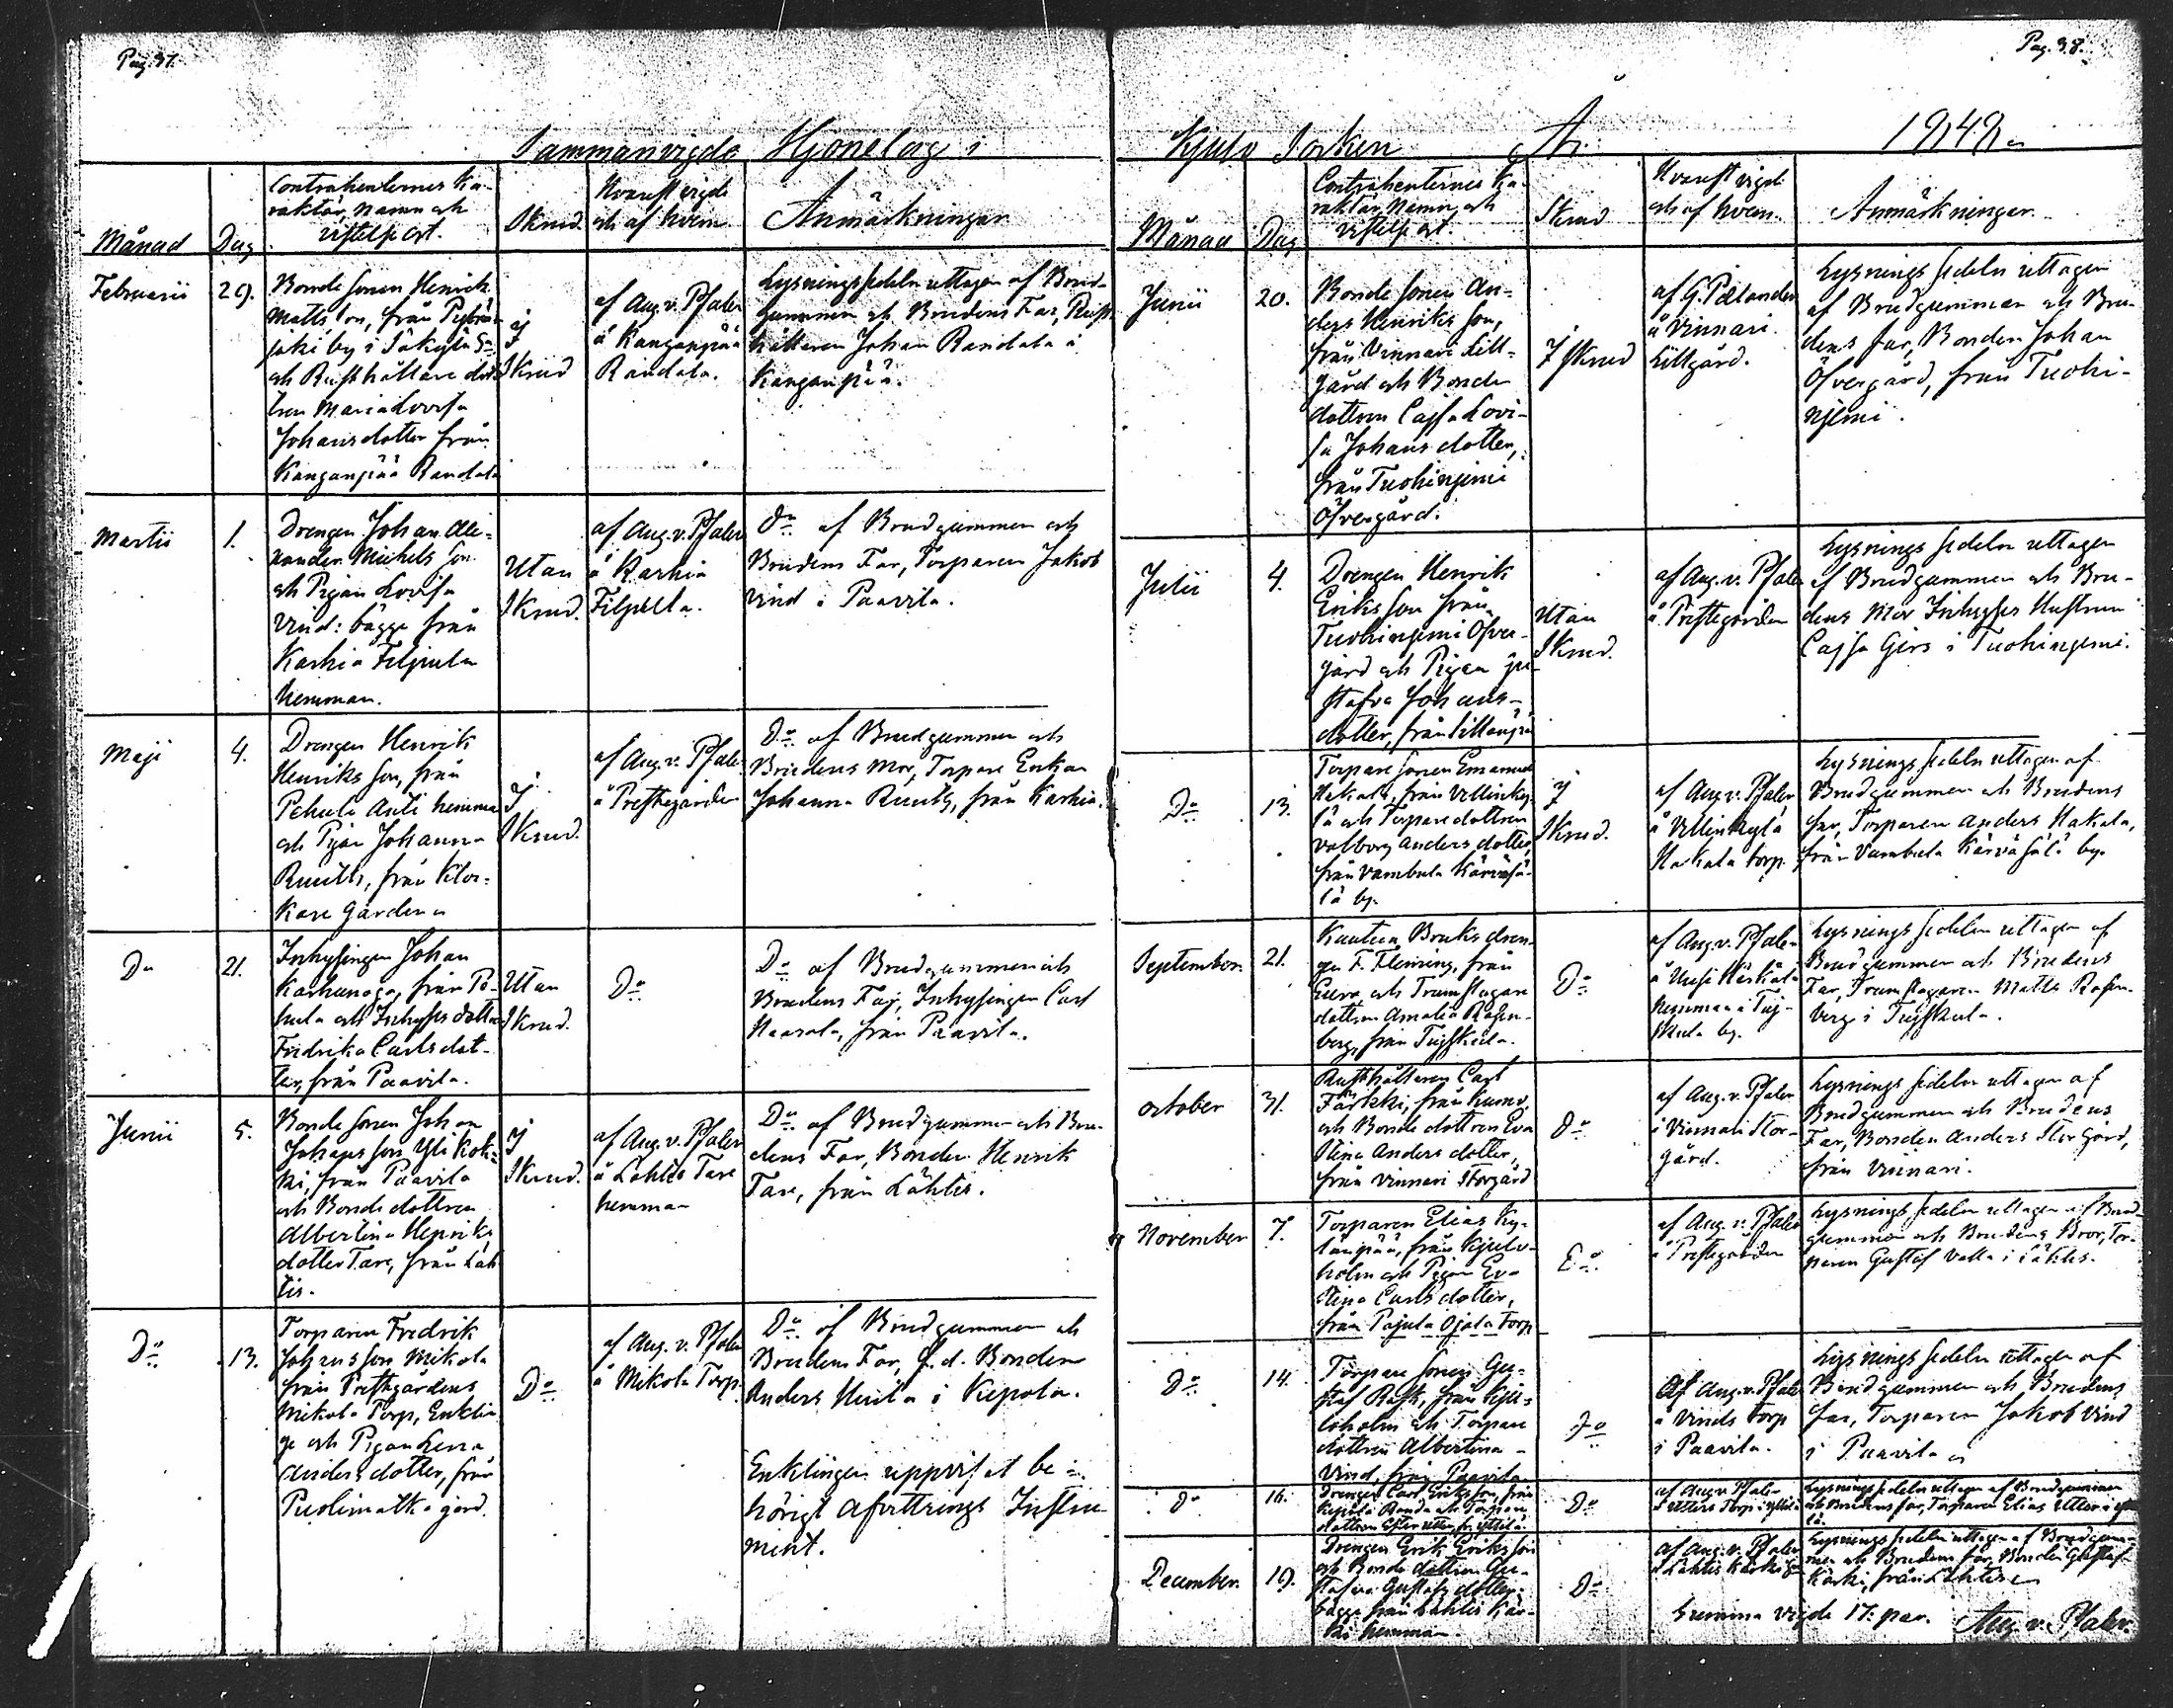 Pag. 37.
Sammanvigde Hjonelag i
Månad
Dag
Contrahenternes Ka-
raktär, Namn och
vistelse ort.
Skrud.
Hvarest vigde
och af hvem
Anmärkningar
Februarii
29.
Bonde sonen Henrik
Matts son, från
joki by i Säkylä Sn
och Rusthållare dot-
tren Maria Lovisa
Johansdotter från
Kanganpää Randala
J
Skrud
af Aug. v. Pfaler
å Kanganpää
Randala.
Lysningssedeln uttagen af Brud-
gummen och Brudens Far, Rust-
hållaren Johan Randala i
Kanganpää.
Martii
1.
Drengen Johan Ale-
xander Michels son
och Pigan Lovisa
Vind: bägge från
Karhia Filpula
hemman.
Utan
Skrud.
af Aug. v. Pfaler
å Karhia
Filpula.
Do af Brudgummen och
Brudens Far, Torparen Jakob
Vind i Paavila.
Maji
4.
Drengen Henrik
Henriks son, från
Pehula Anti hemman
och Pigan Johanna
Ruuth, från Kloc-
kare Gården
J
Skrud.
af Aug. v. Pfaler
å Prestegården
Do af Brudgummen och
Brudens Mor, Torpare Enkan
Johanna Ruuth, från Karhia.
Do
21.
Inhysingen Johan
Karhunoga, från Pe-
hula och Inhyses dotter
Fredrika Carls dot-
ter, från Paavila.
Utan
Skrud.
Do
Do af Brudgummen och
Brudens Far, Inhysingen Carl
Haarala, från Paavila.
Junii
5.
Bonde sonen Johan
Johans son Yli Kok-
ki, från Paavila
och Bonde dottren
Albertina Henriks
dotter Tare, från Läh-
tis.
J
Skrud.
af Aug. v. Pfaler
å Lähtis Tare
hemman
Do af Brudgummen och Bru-
dens Far, Bonden Henrik
Tare, från Lähtis.
Do
13.
Torparen Fredrik
Johansson Mikola
från Prestgårdens
Mikola Torp, Enklin-
ge och Pigan Lena
Anders dotter, från
Puolimatka gård.
Do
af Aug. v. Pfaler
å Mikola Torp.
Do af Brudgummen och
Brudens Far, f. d. Bonden
Anders Heurla i Kepola.
Enklingen uppvisat be-
hörigt Afvittrings Instru-
ment.
Pag. 38.
Kjulo Socken År 1848
Månad
Dag
Contrahenternes Ka-
raktär, Namn och
vistelse ort.
Skrud
Hvarest vigde
och af hvem.
Anmärkningar.
Junii
20.
Bonde sonen An-
ders Henriks son,
från Vinnari Lill-
gård och Bonde
dottren Cajsa Lovi-
sa Johans dotter,
från Tuohinjemi
Öfvergård.
J Skrud
af G. Polander
å Vinnari
Lillgård.
Lysnings sedeln uttagen
af Brudgummen och Bru-
dens far, Bonden Johan
Öfvergård, från Tuohi-
njemi.
Julii
4.
Drengen Henrik
Eriks son från
Tuohinjemi Öfver-
gård och Pigan Gu-
stafva Johans-
dotter, från
Utan
Skrud.
af Aug. v. Pfaler
å Prestegården
Lysnings sedeln uttagen
af Brudgummen och Bru-
dens Mor Inhyses Hustrun
Cajsa Girs i Tuohinjemi.
Do
13.
Torpare sonen Emanuel
Hakala, från Vellinky-
lä och Torpare dottren
Valborg Anders dotter,
från Vambula Kärväsä-
lä by.
J
Skrud.
af Aug. v. Pfaler
å Vellinkylä
Hakala torp.
Lysnings sedeln uttagen af
Brudgummen och Brudens
far, Torparen Anders Hakala,
från Vambula Kärväsälä by.
September.
21.
Kauttua Bruks dren-
gen F. Fleming, från
Eura, och Trumslagare
dottren Amalia Rosen-
berg, från Tujskula.
Do
af Aug. v. Pfaler
å Uusi Heikkilä
hemman i Tuj-
skula by.
Lysnings sedeln uttagen af
Brudgummen och Brudens
Far, Trumslagaren Matts Rosen-
berg i Tujskula.
October
31.
Rusthållaren Carl
Färkki, från Eumo,
och Bonde dottren Eva
Stina Anders dotter,
från Vinnari Storgård
Do
af Aug. v. Pfaler
i Vinnari Stor-
gård.
Lysnings sedeln uttagen af
Brudgummen och Brudens
Far, Bonden Anders Storgård,
från Vinnari.
November
7.
Torparen Elias Ky-
länpää, från Kjulo-
holm och Pigan Eva
Stina Carls dotter,
från Pajula Ojala Torp
Do
af Aug. v. Pfaler
å Prestegården
Lysnings sedeln uttagen af Brud-
gummen och Brudens Bror, Tor-
paren Gustaf Valla i Lähtis.
Do
14.
Torpare sonen Gu-
staf Rask, från Kju-
loholm och Torpare
dottren Albertina
Vind, från Paavila.
Do
Af Aug. v. Pfaler
å Vinds torp
i Paavila.
Lysnings sedeln uttagen af
Brudgummen och Brudens
far, Torparen Jakob Vind
i Paavila
Do
16.
Drengen Carl Eriksson, från
Kepola Ronda och Torpare
dottren Ester Utter fr. Yttilä
Do
af Aug. v. Pfaler
å Utters Torp i Yttilä
Lysnings sedeln uttagen af Brudgummen
och Brudens far, Torparen Elias Utter i Ytti-
lä.
December.
19.
Drengen Erik Eriks son
och Bonde dottren Gu-
stafva Gustafs dotter
bägge från Lähtis Kär-
ki hemman.
Do
af Aug. v. Pfaler
å Lähtis Kärki
Lysnings sedeln uttagen af Brudgum-
men och Brudens far, Bonden Gustaf
Kärki, från Lähtis
Summa vigde 17: par.
Aug. v. Pfaler.